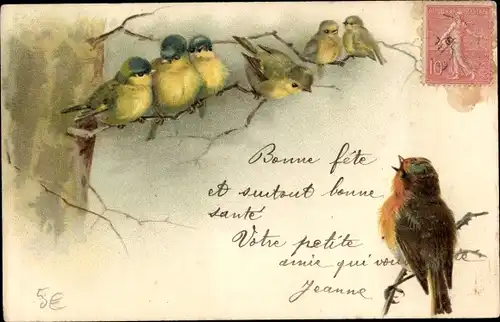 Bonne fête
et surtout bonne
santé
Votre petite
amie qui vous
Jeanne
10
5€